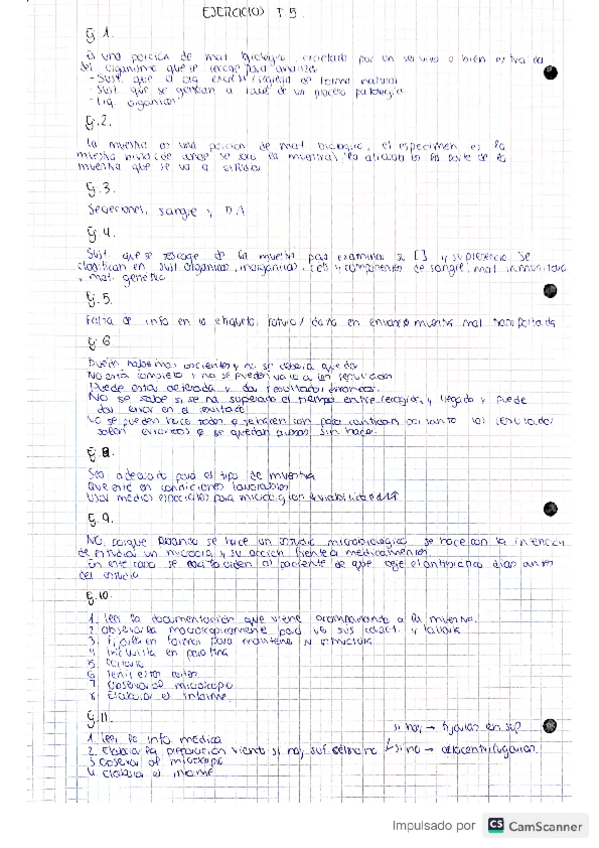 EJERCICIOS T5
Ej 1.
Es una porción de mat biológico, excretado por un ser vivo o bien extraida
del organismo que se recoge para analizar
- Sust. que el org excreta/segrega de forma natural
- Sust. que se generan a raiz de un proceso patologico
- Liq. organicos
Ej.2.
La muestra es una porción de mat biologico, el especimen es la
muestra de donde se la la parte de la
muestra que se va a estudiar
Ej.3.
Secreciones, sangre y
Ej 4.
Sust. que se recoge de la muestra para examinar su [] y su presencia. Se
clasifican en sust organicas, inorganicas, cels y componentes de sangre, mat inmunitario
, mat. genetico
Ej.5.
Falta de info en la etiqueta, rotura/ daño en envase muestra mal transportada
Ej 6
no se deberia guardar
No esta completo y no se pueden los resultados
Puede estar alterada y dar resultados erroneos.
No se sabe si se ha superado el tiempo entre recogida y llegado y puede
dar error en el resultado
No se pueden hacer todos o se hacen con poca cantidad por tanto los resultados
salen erroneos o se quedan pruebas sin hacer.
Ej.8.
Sea adecuado para el tipo de muestra
Que esté en condiciones favorables
Usar medios especificos para
Ej.9.
NO, porque cuando se hace un estudio microbiologico se hace con la intencion
de estudiar un microorg y su acción frente a medicamentos
En este caso se al paciente de que deje el antibiotico dias antes
del estudio
Ej.10.
1. Leer la documentación que viene acompañando a la muestra.
2. Observarla macroscopicamente para ver sus caract. y tallarla
3. Fijarla en formol para mantener su estructura
4. Incluirla en parafina
5. Cortarla
6. Tenir estos cortes
7. Observar al microscopio
8. Elaborar el informe.
Ej.11.
si hay → fijarlas en
1. Leer la info medica
2. Elaborar la preparación viendo si hay suf. celulas si no → citocentrifugarlas
3. Observar al microscopio
4. Elaborar el informe
Impulsado por CS CamScanner